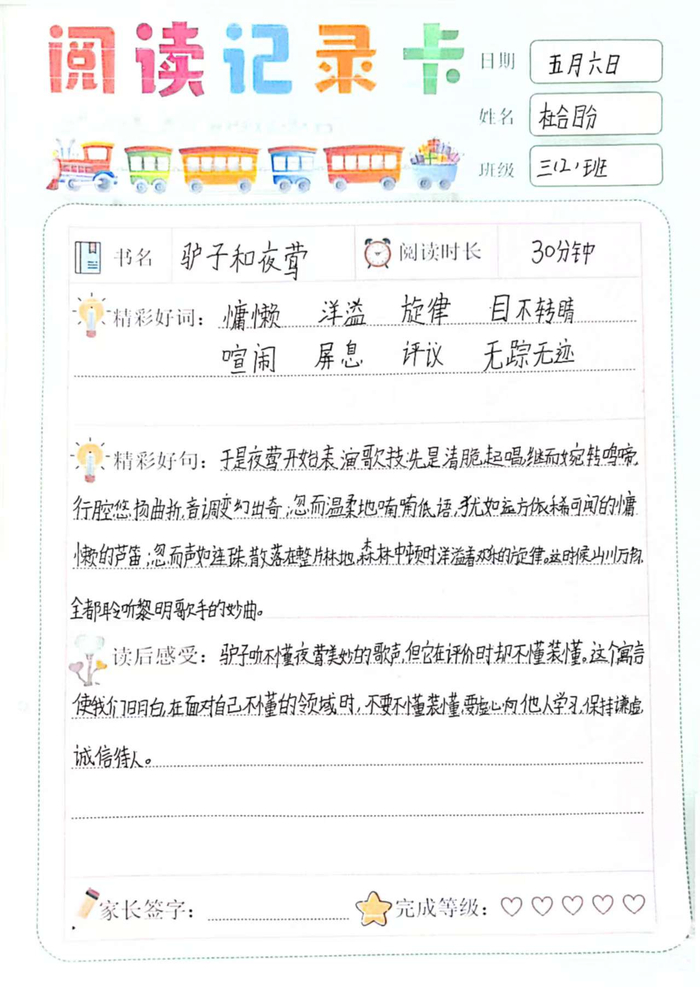 阅读记录卡
日期 五月六日
姓名
班级 三(2)班
书名 驴子和夜莺 阅读时长 30分钟
精彩好词: 慵懒 洋溢 旋律 目不转睛
喧闹 屏息 评议 无踪无迹
精彩好句: 于是夜莺开始表演歌技,先是清脆起唱,继而婉转鸣啼,
行腔悠扬曲折,音调变幻出奇;忽而温柔地喃喃低语,犹如远方依稀可闻的慵
懒的芦笛;忽而声如连珠,散落在整片林地,森林中顿时洋溢着欢乐的旋律。这时候山川万物,
全都聆听黎明歌手的妙曲。
读后感受: 驴子听不懂夜莺美妙的歌声,但它在评价时却不懂装懂。这个寓言
使我们明白,在面对自己不懂的领域时,不要不懂装懂,要虚心向他人学习,保持谦虚,
诚信待人。
家长签字: 完成等级: